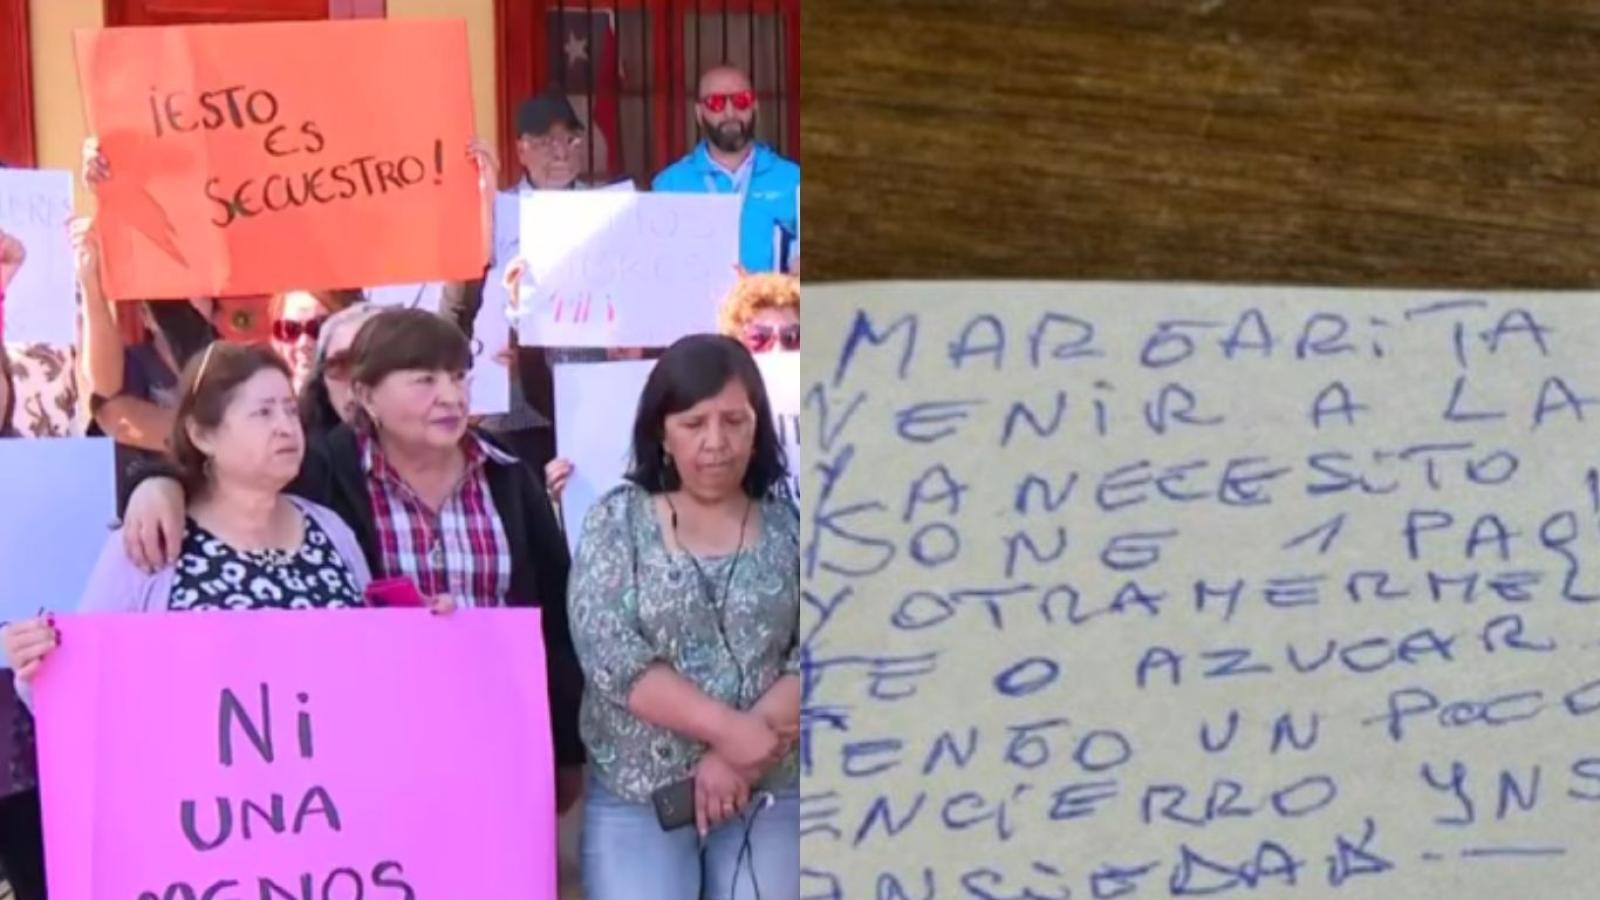 ¡ESTO
ES
SECUESTRO!
Ni
UNA
MENOS
MARGARiTA
VENiR A LA
YA NECESiTO
SONE 1 PAQ
Y OTRA MERMEL
TE O AZUCAR
TENGO UN POCO
ENCiERRO, YNS
ANSiEDAD.—